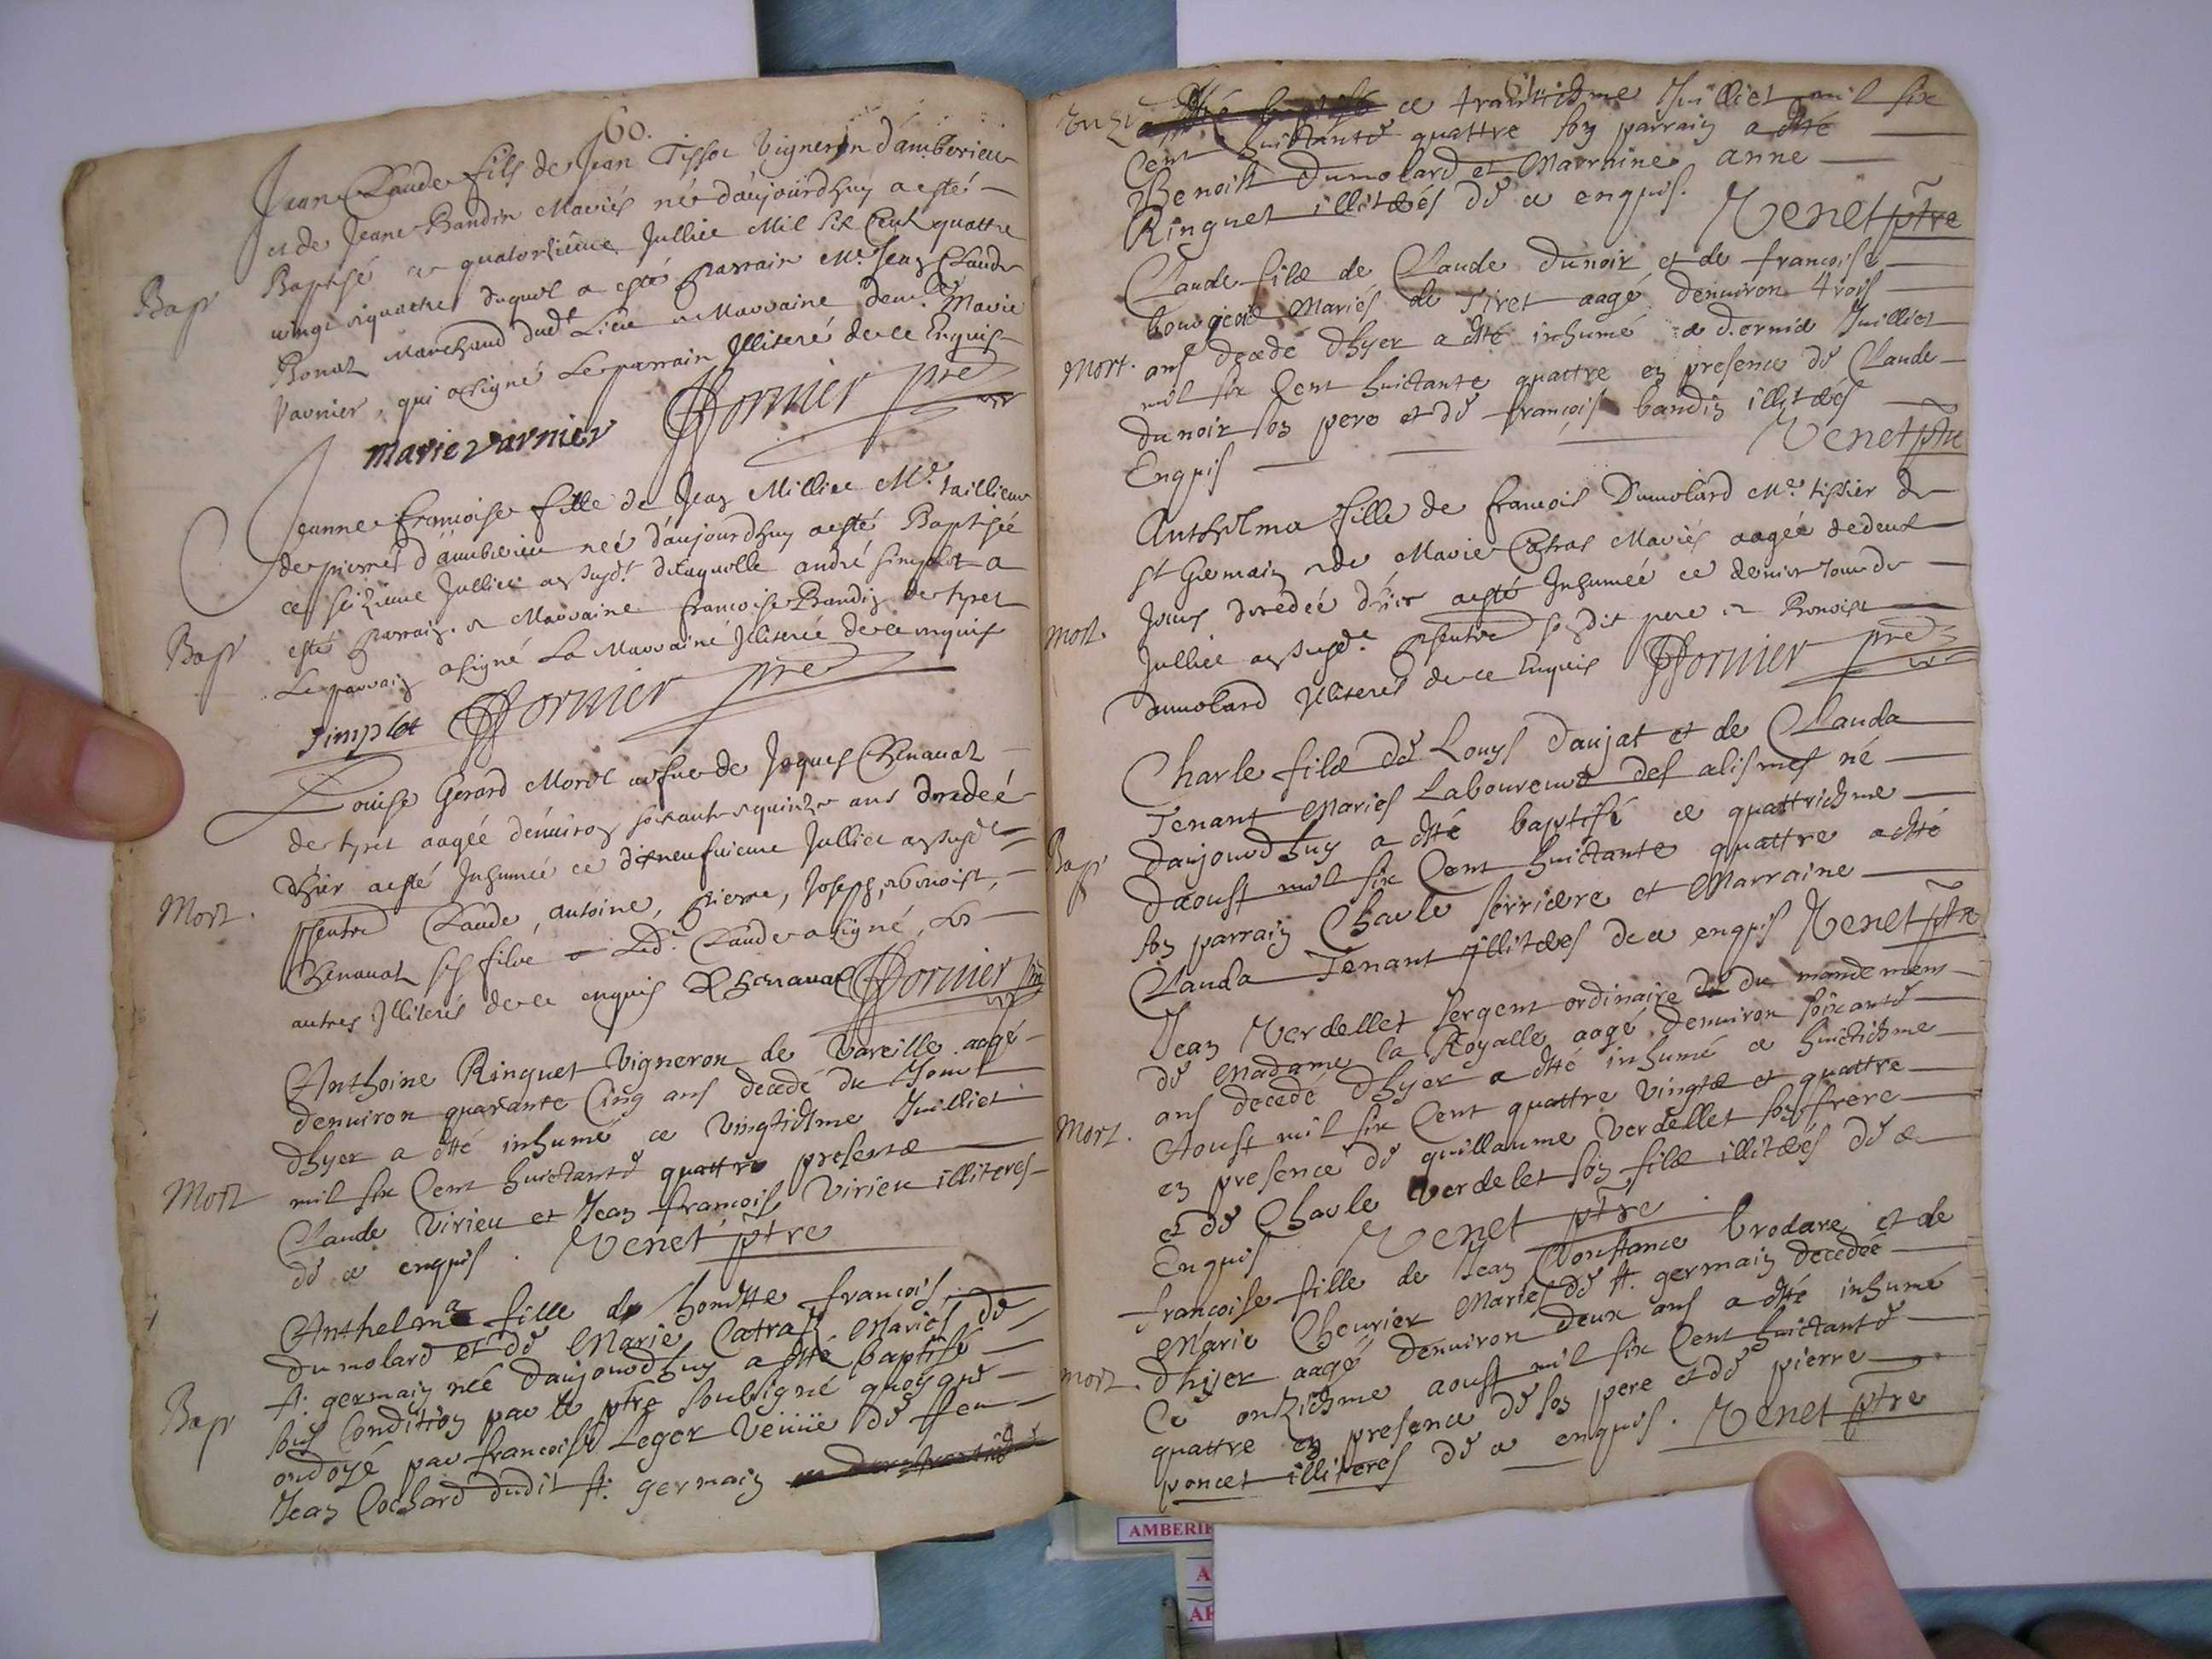 60.
Jean Claude fils de Jean Tissot Vigneron d'amberieu
et de Jeane Bandin Mariés né d'aujourdhuy a esté
Bap
Baptisé ce quatorzieme Julliet Mil six Cent quattre
vingt et quattre duquel a esté parrain Mr Jean Claude
Bonat Marchand dudt Lieu et Marraine demlle Marie
Varnier, qui a signé Le parrain Illiteré de ce Enquis
marie varnier Dornier pre
Jeanne Francoise fille de Jean Milliet Me taillieur
de pierres d'amberieu neé d'aujourdhuy a esté Baptisée
ce seizieme Julliet an susdt de laquelle andré simplot a
Bap
esté parrain et Marraine francoise Bandin de tyret
Le parrain a signé La Marraine Illiterée de ce enquis
simplot Dornier pre
Louise Gerard Morel vefue de Jaques Chenaual
de tyret aagée d'enuiron soixante et quinze ans decedeé
d'hier a esté Inhumeé ce dixneufuieme Julliet an susdt
Mort.
psents Claude, Antoine, pierre, Joseph, et benoist,
Chenaual ses fils Ledt Claude a signé, Les
autres Illiterés de ce enquis C Chenaual Dornier pre
Anthoine Ringuet Vigneron de Vareille aagé
denuiron quarante Cinq ans decedé du Jour
dhyer a esté inhumé ce Vingtiesme Juilliet
Mort
mil six Cent huictante quattre presents
Claude Virieu et Jean francois Virieu illiteres
de ce enquis. Venet ptre
Anthelma fille de honeste francois
dumolard et de Marie Catras Mariés de
st. germain née daujourdhuy a esté baptisé
Bap
sous Condition par le ptre soubsigné quoyque
ondoyé par francoise Leger Veuüe de ffeu
Jean Cochard dudit st. germain
61
ce trantiesme Juilliet mil six
Cent huictante quattre son parrain a esté
Benoist Dumolard et Marraine anne
Ringuet illiterés de ce enquis. Venet ptre
Claude fils de Claude dunoir et de francoise
bourgeois Mariés de Tiret aagé denuiron trois
Mort.
ans decedé dhyer a esté inhumé ce dernie Juilliet
mil six Cent huictante quattre en presence de Claude
dunoir son pere et de françois bandin illiterés
Enquis Venet ptre
Anthelma fille de francois Dumolard Me tissier de
st Germain et de Marie Catras Mariés aagée de deux
Jours decedeé d'hier a esté Inhumeé ce dernier Jour de
Mort.
Julliet an susdt psents sondit pere et Benoist
dumolard Illiterés de ce Enquis Dornier pre
Charle fils de Louys daujat et de Clauda
Tenant Mariés Laboureurs des alismes né
Bap
daujourdhuy a esté baptisé ce quattriesme
daoust mil six Cent huictante quattre a esté
son parrain Charle serriere et Marraine
Clauda Tenant illiteres de ce enquis Venet ptre
Jean Verdellet sergent ordinaire du mandement
de Madame la Royalle aagé denuiron soixante
ans decedé dhyer a esté inhumé ce huictiesme
Mort.
Aoust mil six Cent quattre vingts et quattre
en presence de guillaume Verdellet son frere
et de Charle Verdelet son fils illiterés de ce
Enquis Venet ptre
francoise fille de Jean Constance brodare et de
Marie Cheurier Mariés de st. germain decedée
mort.
dhyer aagé denuiron deux ans a esté inhumé
Ce onziesme aoust mil six Cent huictante
quattre en presence de son pere et de pierre
poncet illiteres de ce enquis. Venet ptre
AMBERI